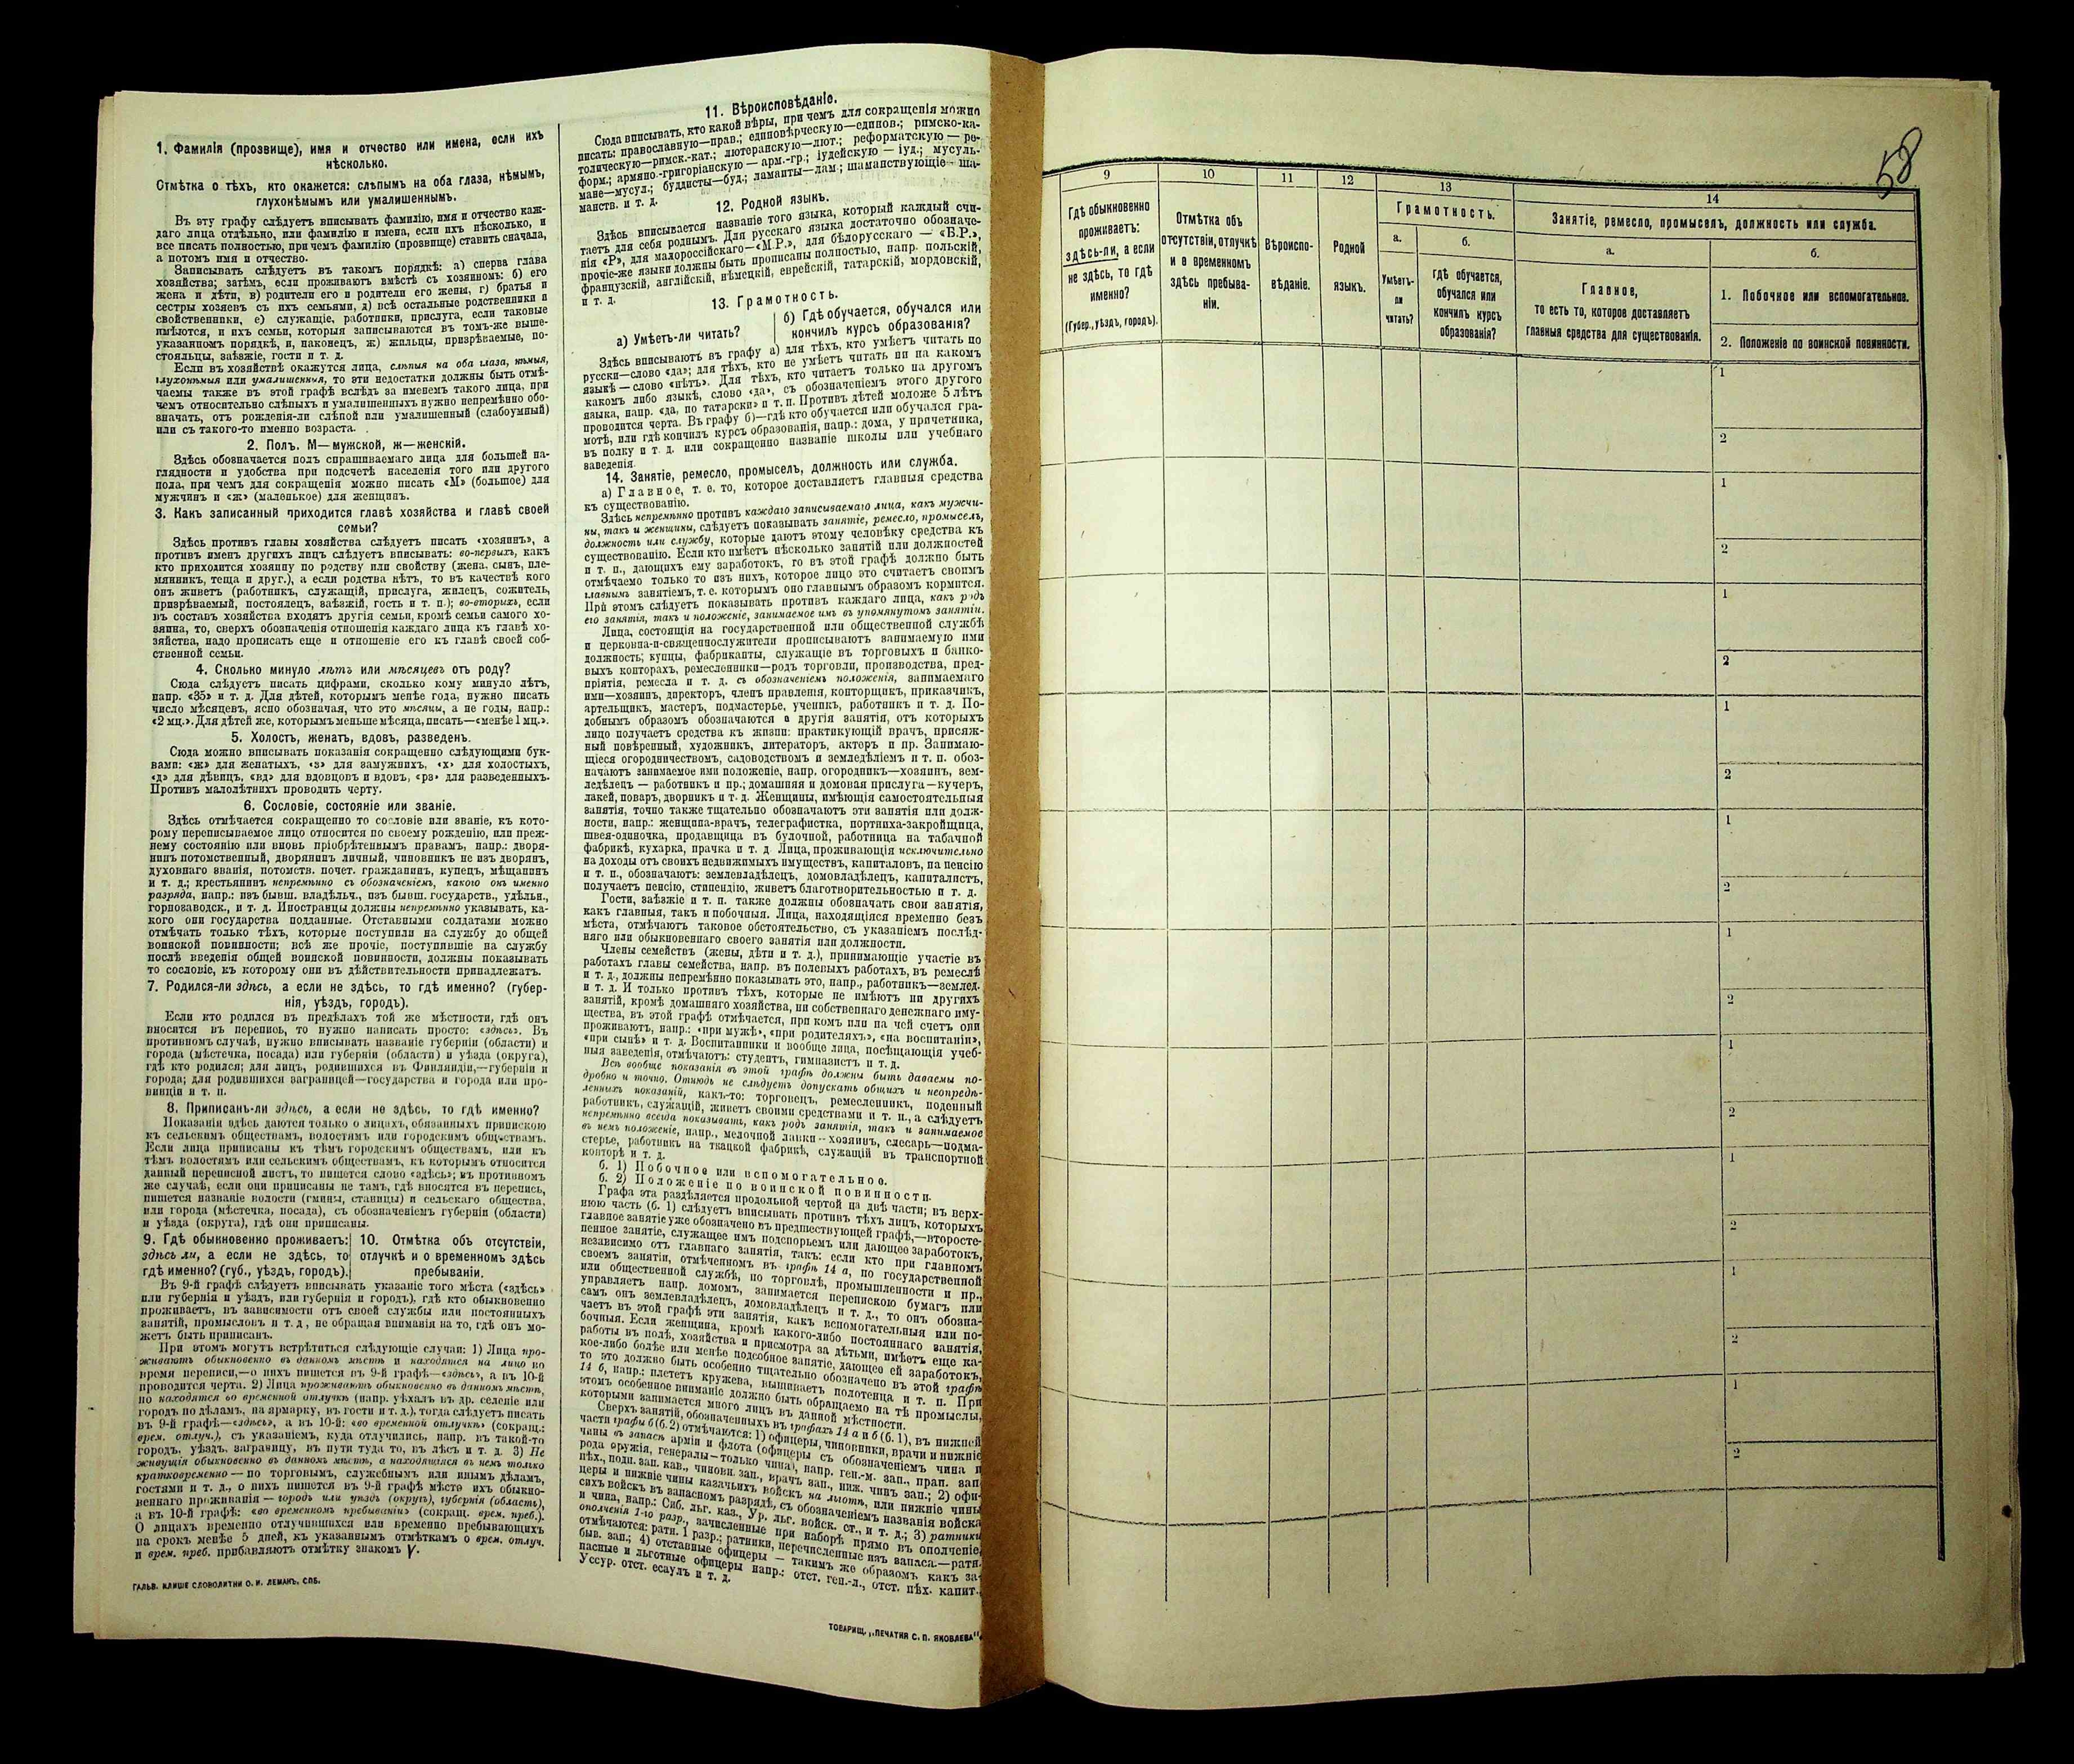 1. Фамилія (прозвище), имя и отчество или имена, если ихъ
нѣсколько.
Отмѣтка о тѣхъ, кто окажется: слѣпымъ на оба глаза, нѣмымъ,
глухонѣмымъ или умалишеннымъ.
Въ эту графу слѣдуетъ вписывать фамилію, имя и отчество каж-
даго лица отдѣльно, или фамилію и имена, если ихъ нѣсколько, и
все писать полностью, при чемъ фамилію (прозвище) ставить сначала,
а потомъ имя и отчество.
Записывать слѣдуетъ въ такомъ порядкѣ: а) сперва глава
хозяйства; затѣмъ, если проживаютъ вмѣстѣ съ хозяиномъ: б) его
жена и дѣти, в) родители его и родители его жены, г) братья и
сестры хозяевъ съ ихъ семьями, д) всѣ остальные родственники и
свойственники, е) служащіе, работники, прислуга, если таковые
имѣются, и ихъ семьи, которыя записываются въ томъ-же выше-
указанномъ порядкѣ, и, наконецъ, ж) жильцы, призрѣваемые, по-
стояльцы, заѣзжіе, гости и т. д.
Если въ хозяйствѣ окажутся лица, слѣпыя на оба глаза, нѣмыя,
глухонѣмыя или умалишенныя, то эти недостатки должны быть отмѣ-
чаемы также въ этой графѣ вслѣдъ за именемъ такого лица, при
чемъ относительно слѣпыхъ и умалишенныхъ нужно непремѣнно обо-
значать, отъ рожденія-ли слѣпой или умалишенный (слабоумный)
или съ такого-то именно возраста.
2. Полъ. М—мужской, ж—женскій.
Здѣсь обозначается полъ спрашиваемаго лица для большей на-
глядности и удобства при подсчетѣ населенія того или другого
пола, при чемъ для сокращенія можно писать «М» (большое) для
мужчинъ и «ж» (маленькое) для женщинъ.
3. Какъ записанный приходится главѣ хозяйства и главѣ своей
семьи?
Здѣсь противъ главы хозяйства слѣдуетъ писать «хозяинъ», а
противъ именъ другихъ лицъ слѣдуетъ вписывать: во-первыхъ, какъ
кто приходится хозяину по родству или свойству (жена, сынъ, пле-
мянникъ, теща и друг.), а если родства нѣтъ, то въ качествѣ кого
онъ живетъ (работникъ, служащій, прислуга, жилецъ, сожитель,
призрѣваемый, постоялецъ, заѣзжій, гость и т. п.); во-вторыхъ, если
въ составъ хозяйства входятъ другія семьи, кромѣ семьи самого хо-
зяина, то, сверхъ обозначенія отношенія каждаго лица къ главѣ хо-
зяйства, надо прописать еще и отношеніе его къ главѣ своей соб-
ственной семьи.
4. Сколько минуло лѣтъ или мѣсяцевъ отъ роду?
Сюда слѣдуетъ писать цифрами, сколько кому минуло лѣтъ,
напр. «35» и т. д. Для дѣтей, которымъ менѣе года, нужно писать
число мѣсяцевъ, ясно обозначая, что это мѣсяцы, а не годы, напр.:
«2 мц.». Для дѣтей же, которымъ меньше мѣсяца, писать—«менѣе 1 мц.».
5. Холостъ, женатъ, вдовъ, разведенъ.
Сюда можно вписывать показанія сокращенно слѣдующими бук-
вами: «ж» для женатыхъ, «з» для замужнихъ, «х» для холостыхъ,
«д» для дѣвицъ, «вд» для вдовцовъ и вдовъ, «рз» для разведенныхъ.
Противъ малолѣтнихъ проводить черту.
6. Сословіе, состояніе или званіе.
Здѣсь отмѣчается сокращенно то сословіе или званіе, къ кото-
рому переписываемое лицо относится по своему рожденію, или преж-
нему состоянію или вновь пріобрѣтеннымъ правамъ, напр.: дворя-
нинъ потомственный, дворянинъ личный, чиновникъ не изъ дворянъ,
духовнаго званія, потомств. почет. гражданинъ, купецъ, мѣщанинъ
и т. д.; крестьянинъ непремѣнно съ обозначеніемъ, какого онъ именно
разряда, напр.: изъ бывш. владѣльч., изъ бывш. государств., удѣльн.,
горнозаводск., и т. д. Иностранцы должны непремѣнно указывать, ка-
кого они государства подданные. Отставными солдатами можно
отмѣчать только тѣхъ, которые поступили на службу до общей
воинской повинности; всѣ же прочіе, поступившіе на службу
послѣ введенія общей воинской повинности, должны показывать
то сословіе, къ которому они въ дѣйствительности принадлежатъ.
7. Родился-ли здѣсь, а если не здѣсь, то гдѣ именно? (губер-
нія, уѣздъ, городъ).
Если кто родился въ предѣлахъ той же мѣстности, гдѣ онъ
вносится въ перепись, то нужно написать просто: «здѣсь». Въ
противномъ случаѣ, нужно вписывать названіе губерніи (области) и
города (мѣстечка, посада) или губерніи (области) и уѣзда (округа),
гдѣ кто родился; для лицъ, родившихся въ Финляндіи,—губерніи и
города; для родившихся заграницей—государства и города или про-
винціи и т. п.
8. Приписанъ-ли здѣсь, а если не здѣсь, то гдѣ именно?
Показанія здѣсь даются только о лицахъ, обязанныхъ припискою
къ сельскимъ обществамъ, волостямъ или городскимъ обществамъ.
Если лица приписаны къ тѣмъ городскимъ обществамъ, или къ
тѣмъ волостямъ или сельскимъ обществамъ, къ которымъ относится
данный переписной листъ, то пишется слово «здѣсь»; въ противномъ
же случаѣ, если они приписаны не тамъ, гдѣ вносятся въ перепись,
пишется названіе волости (гмины, станицы) и сельскаго общества,
или города (мѣстечка, посада), съ обозначеніемъ губерніи (области)
и уѣзда (округа), гдѣ они приписаны.
9. Гдѣ обыкновенно проживаетъ:
здѣсь ли, а если не здѣсь, то
гдѣ именно? (губ., уѣздъ, городъ).
10. Отмѣтка объ отсутствіи,
отлучкѣ и о временномъ здѣсь
пребываніи.
Въ 9-й графѣ слѣдуетъ вписывать указаніе того мѣста («здѣсь»
или губернія и уѣздъ, или губернія и городъ), гдѣ кто обыкновенно
проживаетъ, въ зависимости отъ своей службы или постоянныхъ
занятій, промысловъ и т. д., не обращая вниманія на то, гдѣ онъ мо-
жетъ быть приписанъ.
При этомъ могутъ встрѣтиться слѣдующіе случаи: 1) Лица про-
живаютъ обыкновенно въ данномъ мѣстѣ и находятся на лицо во
время переписи,—о нихъ пишется въ 9-й графѣ—«здѣсь», а въ 10-й
проводится черта. 2) Лица проживаютъ обыкновенно въ данномъ мѣстѣ,
но находятся во временной отлучкѣ (напр. уѣхалъ въ др. селеніе или
городъ по дѣламъ, на ярмарку, въ гости и т. д.), тогда слѣдуетъ писать
въ 9-й графѣ—«здѣсь», а въ 10-й: «во временной отлучкѣ» (сокращ.:
врем. отлуч.), съ указаніемъ, куда отлучились, напр. въ такой-то
городъ, уѣздъ, заграницу, въ пути туда то, въ лѣсъ и т. д. 3) Не
живущія обыкновенно въ данномъ мѣстѣ, а находящіяся въ немъ только
кратковременно — по торговымъ, служебнымъ или инымъ дѣламъ,
гостями и т. д., о нихъ пишется въ 9-й графѣ мѣсто ихъ обыкно-
веннаго проживанія — городъ или уѣздъ (округъ), губернія (область),
а въ 10-й графѣ: «во временномъ пребываніи» (сокращ. врем. преб.).
О лицахъ временно отлучившихся или временно пребывающихъ
на срокъ менѣе 5 дней, къ указаннымъ отмѣткамъ о врем. отлуч.
и врем. преб. прибавляютъ отмѣтку знакомъ V.
ГАЛЬВ. КЛИШЕ СЛОВОЛИТНИ О. И. ЛЕМАНЪ, СПБ.
11. Вѣроисповѣданіе.
Сюда вписывать, кто какой вѣры, при чемъ для сокращенія можно
писать: православную—прав.; единовѣрческую—единов.; римско-ка-
толическую—римск.-кат.; лютеранскую—лют.; реформатскую — ре-
форм.; армяно-григоріанскую — арм.-гр.; іудейскую — іуд.; мусуль-
мане—мусул.; буддисты—буд.; ламаиты—лам.; шаманствующіе — ша-
манств. и т. д.
12. Родной языкъ.
Здѣсь вписывается названіе того языка, который каждый счи-
таетъ для себя роднымъ. Для русскаго языка достаточно обозначе-
нія «Р», для малороссійскаго—«М.Р.», для бѣлорусскаго — «Б.Р.»,
прочіе-же языки должны быть прописаны полностью, напр. польскій,
французскій, англійскій, нѣмецкій, еврейскій, татарскій, мордовскій,
и т. д.
13. Грамотность.
а) Умѣетъ-ли читать?
б) Гдѣ обучается, обучался или
кончилъ курсъ образованія?
Здѣсь вписываютъ въ графу а) для тѣхъ, кто умѣетъ читать по
русски—слово «да»; для тѣхъ, кто не умѣетъ читать ни на какомъ
языкѣ—слово «нѣтъ». Для тѣхъ, кто читаетъ только на другомъ
какомъ либо языкѣ, слово «да», съ обозначеніемъ этого другого
языка, напр. «да, по татарски» и т. п. Противъ дѣтей моложе 5 лѣтъ
проводится черта. Въ графу б)—гдѣ кто обучается или обучался гра-
мотѣ, или гдѣ кончилъ курсъ образованія, напр.: дома, у причетника,
въ полку и т. д. или сокращенно названіе школы или учебнаго
заведенія.
14. Занятіе, ремесло, промыселъ, должность или служба.
а) Главное, т. е. то, которое доставляетъ главныя средства
къ существованію.
Здѣсь непремѣнно противъ каждаго записываемаго лица, какъ мужчи-
ны, такъ и женщины, слѣдуетъ показывать занятіе, ремесло, промыселъ,
должность или службу, которые даютъ этому человѣку средства къ
существованію. Если кто имѣетъ нѣсколько занятій или должностей
и т. п., дающихъ ему заработокъ, то въ этой графѣ должно быть
отмѣчаемо только то изъ нихъ, которое лицо это считаетъ своимъ
главнымъ занятіемъ, т. е. которымъ оно главнымъ образомъ кормится.
При этомъ слѣдуетъ показывать противъ каждаго лица, какъ родъ
его занятія, такъ и положеніе, занимаемое имъ въ упомянутомъ занятіи.
Лица, состоящія на государственной или общественной службѣ
и церковно-и-священнослужители прописываютъ занимаемую ими
должность; купцы, фабриканты, служащіе въ торговыхъ и банко-
выхъ конторахъ, ремесленники—родъ торговли, производства, пред-
пріятія, ремесла и т. д. съ обозначеніемъ положенія, занимаемаго
ими—хозяинъ, директоръ, членъ правленія, конторщикъ, приказчикъ,
артельщикъ, мастеръ, подмастерье, ученикъ, работникъ и т. д. По-
добнымъ образомъ обозначаются и другія занятія, отъ которыхъ
лицо получаетъ средства къ жизни: практикующій врачъ, присяж-
ный повѣренный, художникъ, литераторъ, актеръ и пр. Занимаю-
щіеся огородничествомъ, садоводствомъ и земледѣліемъ и т. п. обоз-
начаютъ занимаемое ими положеніе, напр. огородникъ—хозяинъ, зем-
ледѣлецъ — работникъ и пр.; домашняя и домовая прислуга—кучеръ,
лакей, поваръ, дворникъ и т. д. Женщины, имѣющія самостоятельныя
занятія, точно также тщательно обозначаютъ эти занятія или долж-
ности, напр.: женщина-врачъ, телеграфистка, портниха-закройщица,
швея-одиночка, продавщица въ булочной, работница на табачной
фабрикѣ, кухарка, прачка и т. д. Лица, проживающія исключительно
на доходы отъ своихъ недвижимыхъ имуществъ, капиталовъ, на пенсію
и т. п., обозначаютъ: землевладѣлецъ, домовладѣлецъ, капиталистъ,
получаетъ пенсію, стипендію, живетъ благотворительностью и т. д.
Гости, заѣзжіе и т. п. также должны обозначать свои занятія,
какъ главныя, такъ и побочныя. Лица, находящіяся временно безъ
мѣста, отмѣчаютъ таковое обстоятельство, съ указаніемъ послѣд-
няго или обыкновеннаго своего занятія или должности.
Члены семействъ (жены, дѣти и т. д.), принимающіе участіе въ
работахъ главы семейства, напр. въ полевыхъ работахъ, въ ремеслѣ
и т. д., должны непремѣнно показывать это, напр., работникъ—землед.
и т. д. И только противъ тѣхъ, которые не имѣютъ ни другихъ
занятій, кромѣ домашняго хозяйства, ни собственнаго денежнаго иму-
щества, въ этой графѣ отмѣчается, при комъ или на чей счетъ они
проживаютъ, напр.: «при мужѣ», «при родителяхъ», «на воспитаніи»,
«при сынѣ» и т. д. Воспитанники и вообще лица, посѣщающія учеб-
ныя заведенія, отмѣчаютъ: студентъ, гимназистъ и т. д.
Всѣ вообще показанія въ этой графѣ должны быть даваемы по-
дробно и точно. Отнюдь не слѣдуетъ допускать общихъ и неопредѣ-
ленныхъ показаній, какъ-то: торговецъ, ремесленникъ, поденный
работникъ, служащій, живетъ своими средствами и т. п., а слѣдуетъ
непремѣнно всегда показывать, какъ родъ занятія, такъ и занимаемое
въ немъ положеніе, напр., мелочной лавки—хозяинъ, слесарь—подма-
стерье, работникъ на ткацкой фабрикѣ, служащій въ транспортной
конторѣ и т. д.
б. 1) Побочное или вспомогательное.
б. 2) Положеніе по воинской повинности.
Графа эта раздѣляется продольной чертой на двѣ части; въ верх-
нюю часть (б. 1) слѣдуетъ вписывать противъ тѣхъ лицъ, которыхъ
главное занятіе уже обозначено въ предшествующей графѣ,—второсте-
пенное занятіе, служащее имъ подспорьемъ или дающее заработокъ,
независимо отъ главнаго занятія, такъ: если кто при главномъ
своемъ занятіи, отмѣченномъ въ графѣ 14 а, по государственной
или общественной службѣ, по торговлѣ, промышленности и пр.,
управляетъ напр. домомъ, занимается перепискою бумагъ или
самъ онъ землевладѣлецъ, домовладѣлецъ и т. д., то онъ обозна-
чаетъ въ этой графѣ эти занятія, какъ вспомогательныя или по-
бочныя. Если женщина, кромѣ какого-либо постояннаго занятія,
работы въ полѣ, хозяйства и присмотра за дѣтьми, имѣетъ еще ка-
кое-либо болѣе или менѣе подсобное занятіе, дающее ей заработокъ,
то это должно быть особенно тщательно обозначено въ этой графѣ
14 б, напр.: плететъ кружева, вышиваетъ полотенца и т. п. При
этомъ особенное вниманіе должно быть обращаемо на тѣ промыслы,
которыми занимается много лицъ въ данной мѣстности.
Сверхъ занятій, обозначенныхъ въ графахъ 14 а и б (б. 1), въ нижней
части графы б (б. 2) отмѣчаются: 1) офицеры, чиновники, врачи и нижніе
чины въ запасѣ арміи и флота (офицеры съ обозначеніемъ чина и
рода оружія, генералы—только чина), напр. ген.-м. зап., прап. зап.
пѣх., подп. зап. кав., чиновн. зап., врачъ зап., ниж. чинъ зап.; 2) офи-
церы и нижніе чины казачьихъ войскъ на льготѣ, или нижніе чины
сихъ войскъ въ запасномъ разрядѣ, съ обозначеніемъ названія войска
и чина, напр.: Сиб. льг. каз., Ур. льг. войск. ст., и т. д.; 3) ратники
ополченія 1-го разр., зачисленные при наборѣ прямо въ ополченіе,
отмѣчаются: ратн. 1 разр.; ратники, перечисленные изъ запаса.—ратн.
быв. зап.; 4) отставные офицеры — такимъ же образомъ какъ за-
пасные и льготные офицеры напр.: отст. ген.-л., отст. пѣх. капит.,
Уссур. отст. есаулъ и т. д.
ТОВАРИЩ. „ПЕЧАТНЯ С. П. ЯКОВЛЕВА".
58
9
Гдѣ обыкновенно
проживаетъ:
здѣсь-ли, а если
не здѣсь, то гдѣ
именно?
(Губер., уѣздъ, городъ).
10
Отмѣтка объ
отсутствіи, отлучкѣ
и о временномъ
здѣсь пребыва-
ніи.
11
Вѣроиспо-
вѣданіе.
12
Родной
языкъ.
13
Грамотность.
а.
Умѣетъ-
ли
читать?
б.
гдѣ обучается,
обучался или
кончилъ курсъ
образованія?
14
Занятіе, ремесло, промыселъ, должность или служба.
а.
Главное,
то есть то, которое доставляетъ
главныя средства для существованія.
б.
1. Побочное или вспомогательное.
2. Положеніе по воинской повинности.
1
2
1
2
1
2
1
2
1
2
1
2
1
2
1
2
1
2
1
2